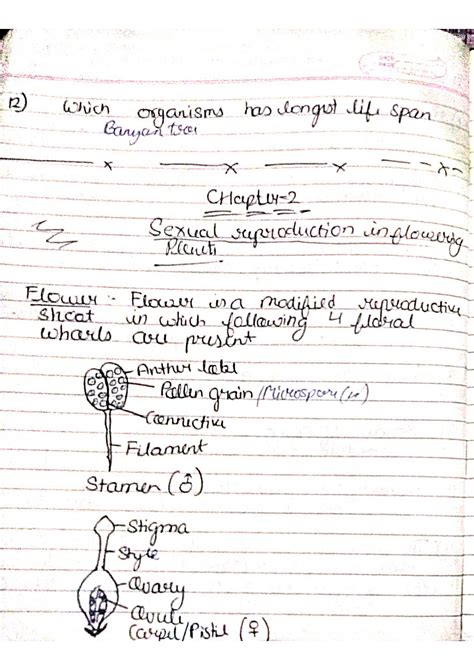 12) Which organisms has longest life span
Banyan tree
CHapter-2
Sexual reproduction in flowering
Plants
Flower - Flower is a modified reproductive
shoot in which following 4 floral
wharls are present
Anther lobe
Pollen grain/Microspore (n)
Connective
Filament
Stamen (♂)
Stigma
Style
Ovary
Ovule
Carpel/Pistil (♀)